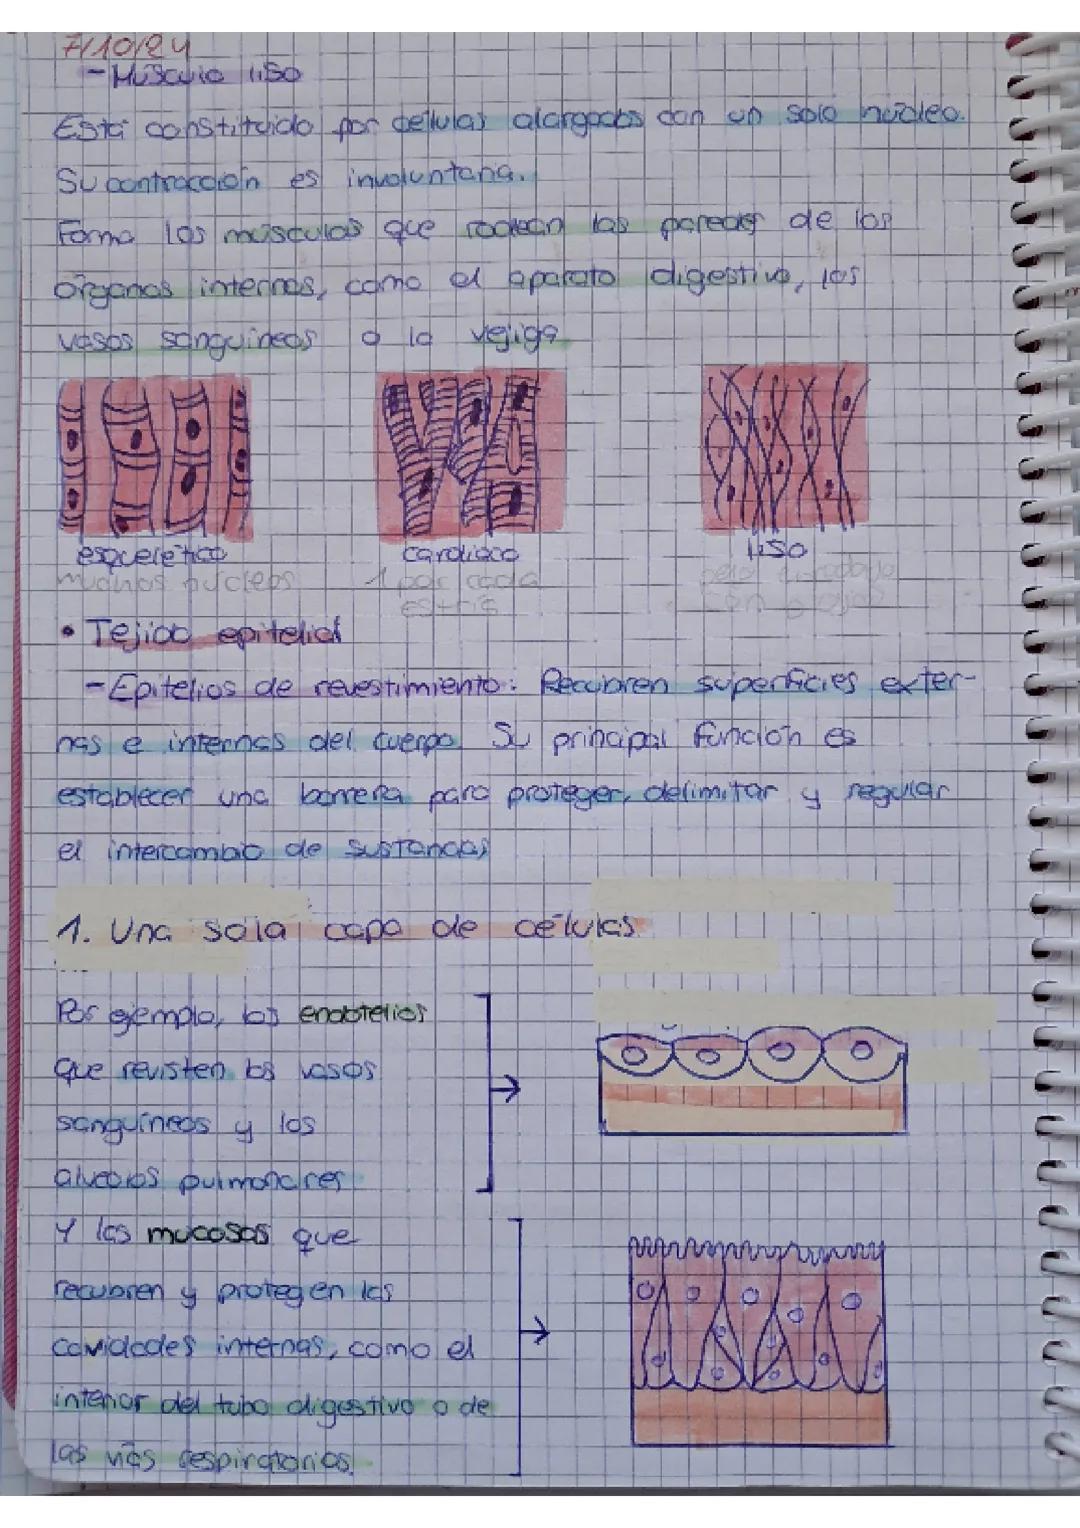 7/10/24
- Músculo liso
Está constituido por células alargadas con un solo núcleo.
Su contracción es involuntaria.
Forma los músculos que rodean las paredes de los
órganos internos, como el aparato digestivo, los
vasos sanguíneos o la vejiga
esquelético cardiaco liso
muchos núcleos 1 por cada
estría
con
• Tejido epitelial
- Epitelios de revestimiento: Recubren superficies exter-
nas e internas del cuerpo. Su principal función es
establecer una barrera para proteger, delimitar y regular
el intercambio de sustancias
1. Una sola capa de células
Por ejemplo, los endotelios
que revisten los vasos
sanguíneos y los
alveolos pulmonares
Y las mucosas que
recubren y protegen las
cavidades internas, como el
interior del tubo digestivo o de
las vías respiratorias.